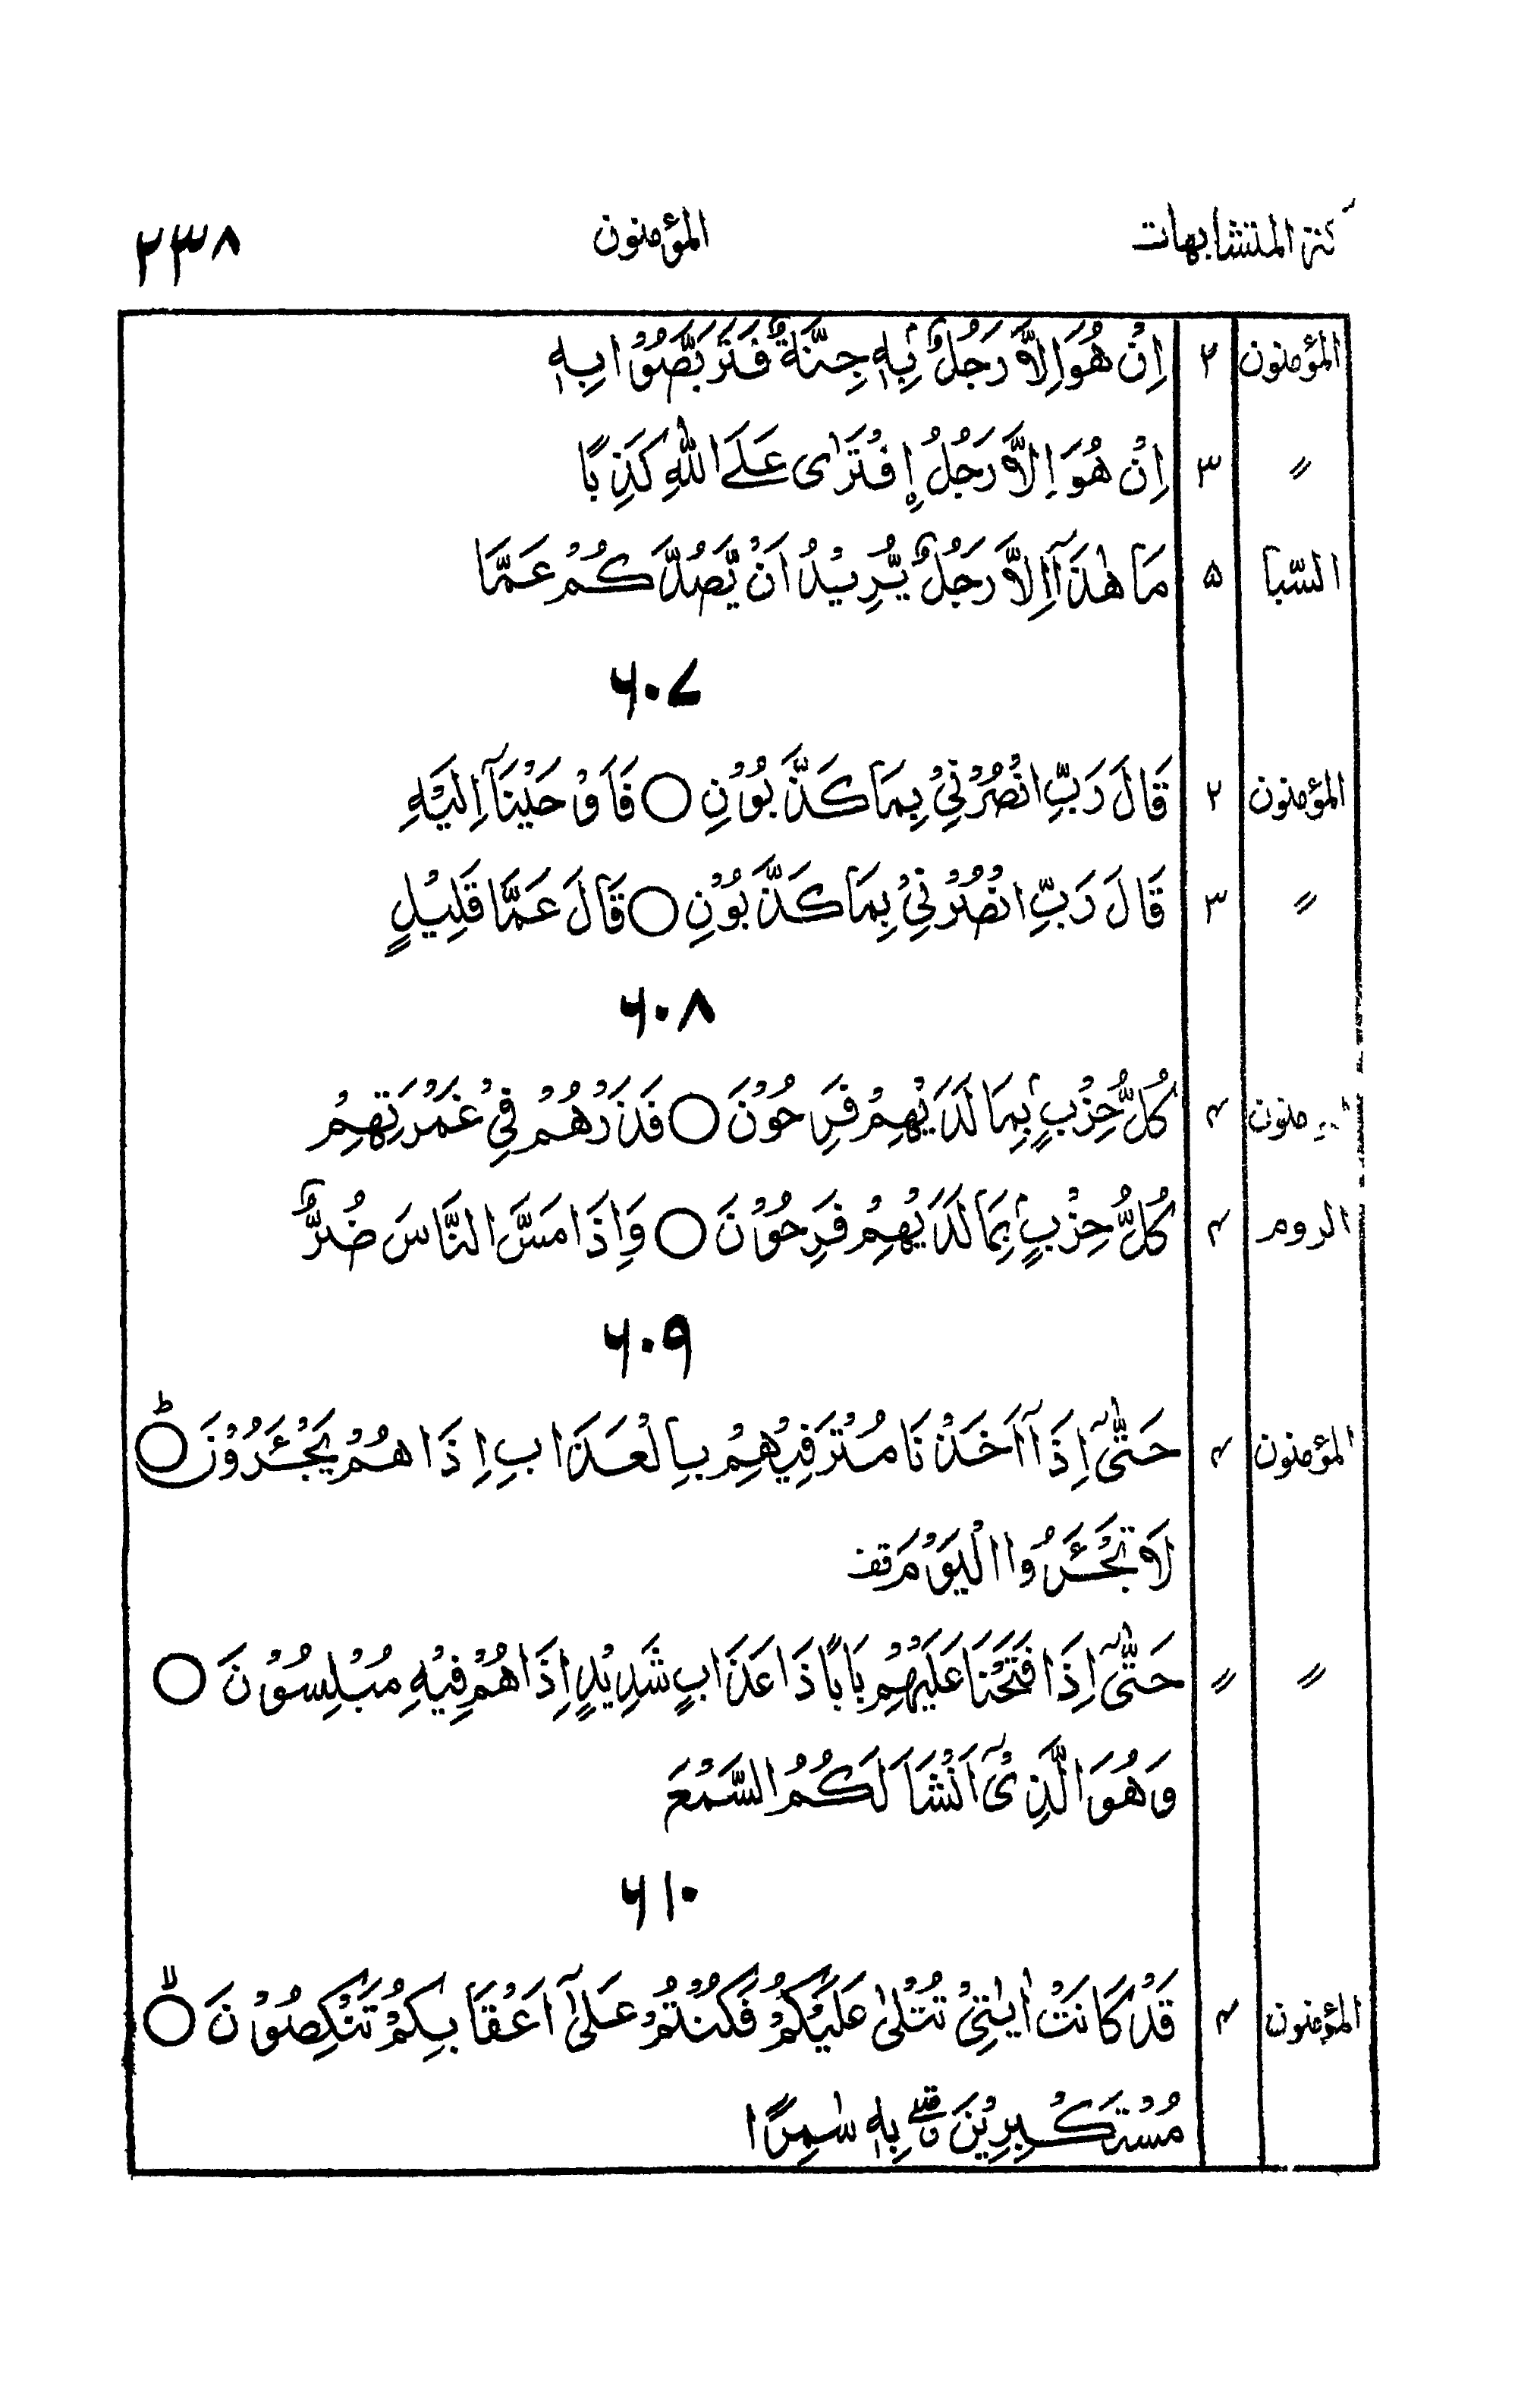 كنز المتشابهات المؤمنون ۲۳۸
المؤمنون ۲ اِنْ هُوَ اِلَّا رَجُلٌۢ بِهٖ جِنَّةٌ فَتَرَبَّصُوْا بِهٖ
〃 ۳ اِنْ هُوَ اِلَّا رَجُلُ ِۨافْتَرٰى عَلَى اللّٰهِ كَذِبًا
السّبا ۵ مَا هٰذَآ اِلَّا رَجُلٌ يُّرِيْدُ اَنْ يَّصُدَّكُمْ عَمَّا
۶۰۷
المؤمنون ۲ قَالَ رَبِّ انْصُرْنِيْ بِمَا كَذَّبُوْنِ ○ فَاَوْحَيْنَآ اِلَيْهِ
〃 ۳ قَالَ رَبِّ انْصُرْنِيْ بِمَا كَذَّبُوْنِ ○ قَالَ عَمَّا قَلِيْلٍ
۶۰۸
منون ۴ كُلُّ حِزْبٍۢ بِمَا لَدَيْهِمْ فَرِحُوْنَ ○ فَذَرْهُمْ فِيْ غَمْرَتِهِمْ
الروم ۴ كُلُّ حِزْبٍۢ بِمَا لَدَيْهِمْ فَرِحُوْنَ ○ وَاِذَا مَسَّ النَّاسَ ضُرٌّ
۶۰۹
المؤمنون ۴ حَتّٰىٓ اِذَآ اَخَذْنَا مُتْرَفِيْهِمْ بِالْعَذَابِ اِذَا هُمْ يَجْـَٔرُوْنَ ○ؕ
لَا تَجْـَٔرُوا الْيَوْمَ قف
〃 〃 حَتّٰىٓ اِذَا فَتَحْنَا عَلَيْهِمْ بَابًا ذَا عَذَابٍ شَدِيْدٍ اِذَا هُمْ فِيْهِ مُبْلِسُوْنَ ○
وَهُوَ الَّذِيْٓ اَنْشَاَ لَكُمُ السَّمْعَ
۶۱۰
المؤمنون ۴ قَدْ كَانَتْ اٰيٰتِيْ تُتْلٰى عَلَيْكُمْ فَكُنْتُمْ عَلٰٓى اَعْقَابِكُمْ تَنْكِصُوْنَ ○ۙ
مُسْتَكْبِرِيْنَ ۖق بِهٖ سٰمِرًا